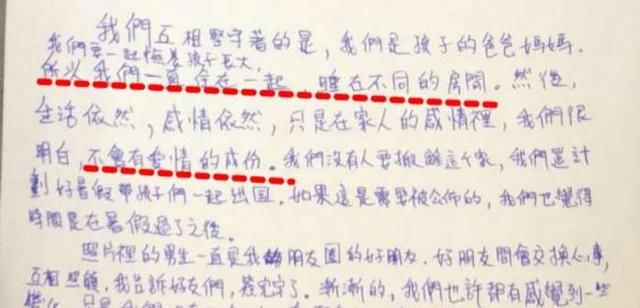 我們互相堅守著的是，我們是孩子的爸爸媽媽.
我們要一起陪著孩子長大,
所以我們一直住在一起，睡在不同的房間。然後,
生活依然，感情依然，只是在家人的感情裡，我們很
明白，不會有愛情的成份。我們沒有人要搬離這个家，我們還計
劃好暑假帶孩子們一起出国.如果這是需要被公佈的，我們也覺得
時間是在暑假過了之後。
照片裡的男生一直是我朋友圈的好朋友.好朋友間會交換心事,
互相照顧,我告訴好友們，簽完字了.漸漸的，我們也許都有感覺到一些